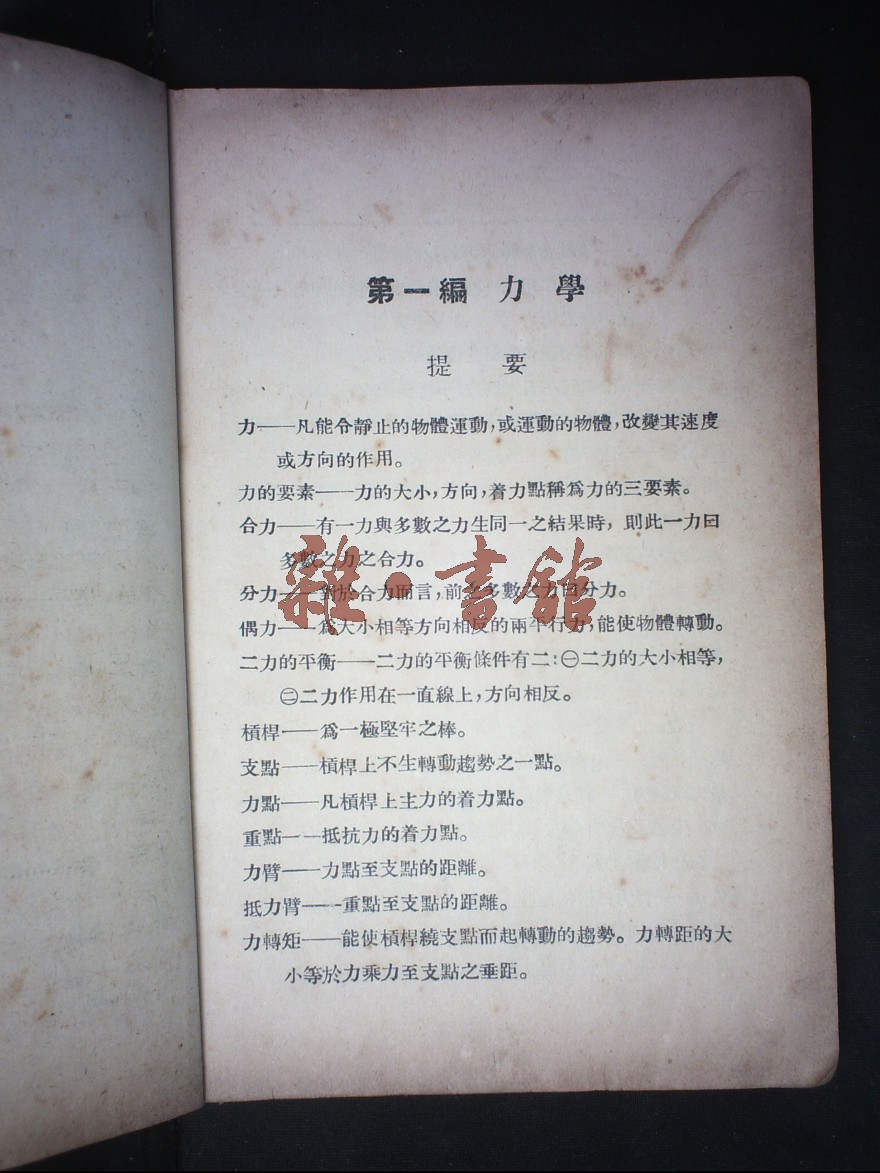 第一編 力學
提要
力——凡能令靜止的物體運動,或運動的物體,改變其速度
或方向的作用。
力的要素——力的大小,方向,着力點稱爲力的三要素。
合力——有一力與多數之力生同一之結果時,則此一力曰
多數之力之合力。
分力——對於合力而言,前之多數之力曰分力。
偶力——爲大小相等方向相反的兩平行力,能使物體轉動。
二力的平衡——二力的平衡條件有二:㊀二力的大小相等,
㊁二力作用在一直線上,方向相反。
槓桿——爲一極堅牢之棒。
支點——槓桿上不生轉動趨勢之一點。
力點——凡槓桿上主力的着力點。
重點——抵抗力的着力點。
力臂——力點至支點的距離。
抵力臂——重點至支點的距離。
力轉矩——能使槓桿繞支點而起轉動的趨勢。力轉距的大
小等於力乘力至支點之垂距。
雜·書館